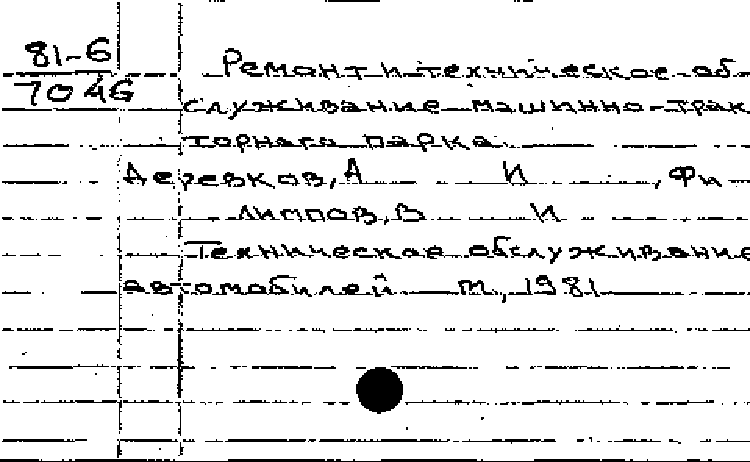 81-6
7046
Ремонт и техническое об-
служивание машинно-трак
торного парка.
Деревков, А И , Фи-
липпов, В И
Техническое обслуживание
автомобилей м., 1981